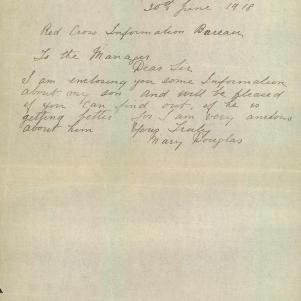 30th June 1918
Red Cross Information Bureau
To the Manager
Dear Sir
I am enclosing you some Information
about my son and will be pleased
if you can find out if he is
getting better for I am very anxious
about him Yours Truly
Mary Douglas